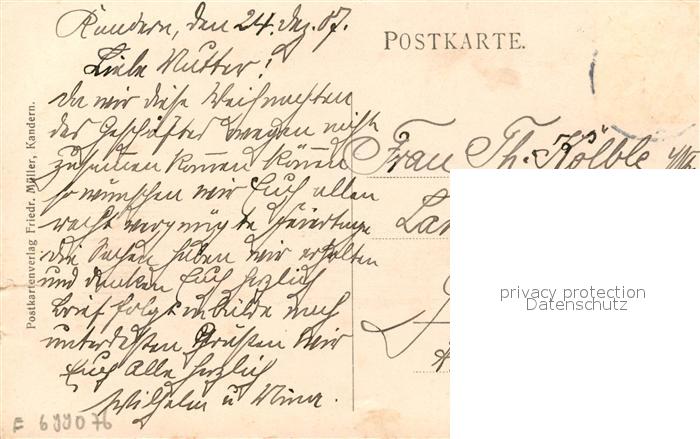 Kandern, den 24. Dez. 07.
POSTKARTE.
Liebe Mutter!
Da wir diese Weihnachten
des Geschäftes wegen nicht
zusammen kommen können
so wünschen wir Euch allen
recht vergnügte Feiertage
die Sachen haben wir erhalten
und danken Euch herzlich
Brief folgt in bälde nach
unterdessen Grüßen wir
Euch Alle herzlich
Wilhelm u
Frau Th. Kölble
privacy protection
Datenschutz
Postkartenverlag Friedr. Müller, Kandern.
F 699076